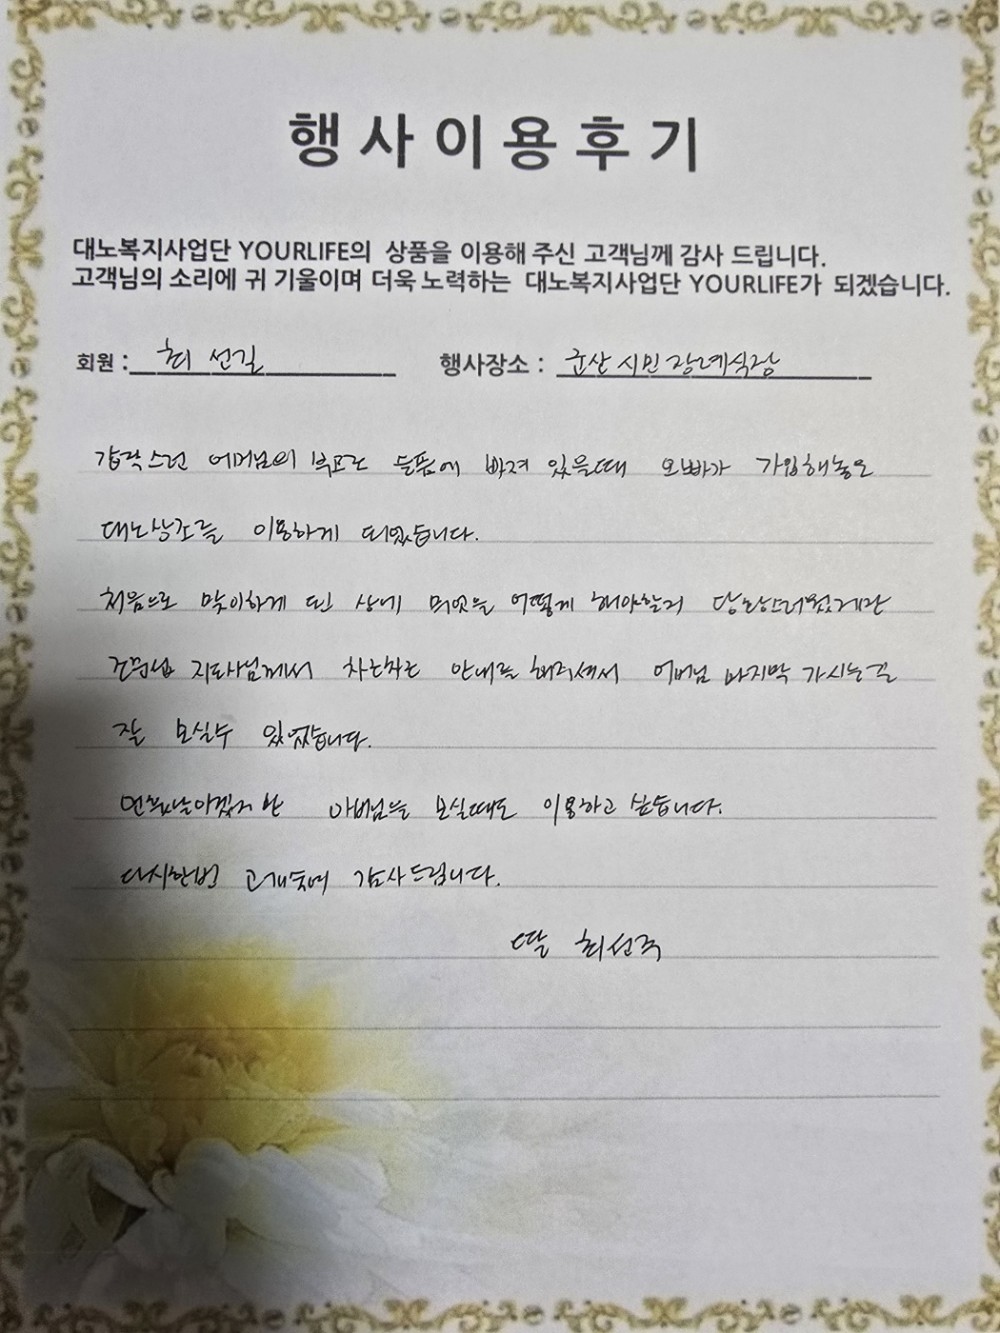 행사이용후기
대노복지사업단 YOURLIFE의 상품을 이용해 주신 고객님께 감사 드립니다.
고객님의 소리에 귀 기울이며 더욱 노력하는 대노복지사업단 YOURLIFE가 되겠습니다.
회원 : 최선길 행사장소 : 군산시민장례식장
갑작스런 어머님의 부고로 슬픔에 빠져 있을때 오빠가 가입해놓은
대노상조를 이용하게 되었습니다.
처음으로 맞이하게 된 상에 무엇을 어떻게 해야할지 당황스러웠는데
지도사님께서 차근차근 안내를 해주셔서 어머님 마지막 가시는길
잘 모실수 있었습니다.
먼훗날이겠지만 아버님을 모실때도 이용하고 싶습니다.
다시한번 고개숙여 감사드립니다.
딸 최선주